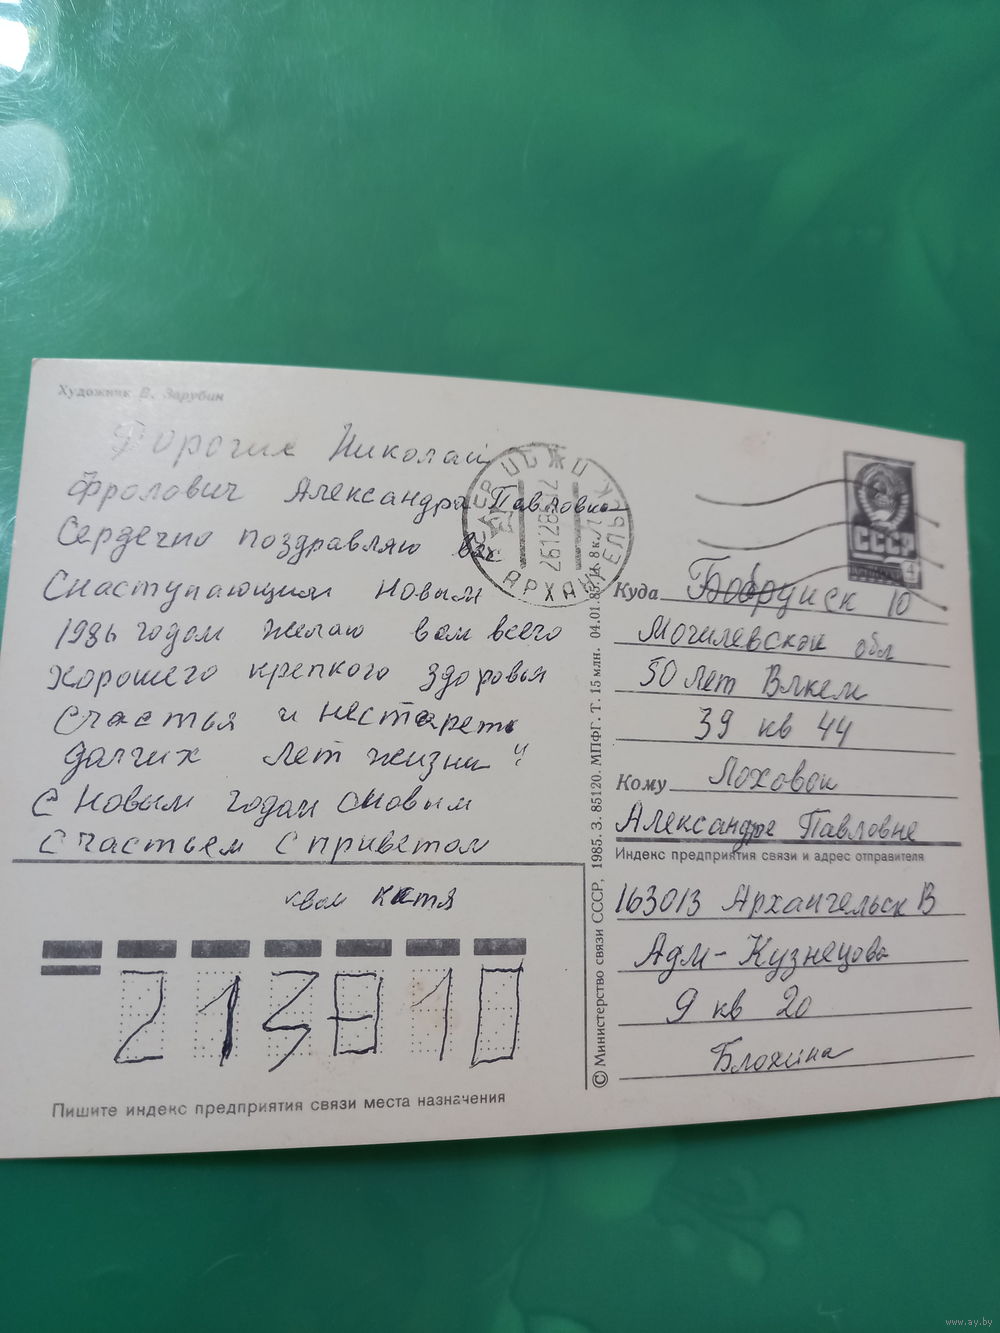 Художник В. Зарубин
Дорогие Николай
Фролович Александра Павловна
Сердечно поздравляю вас
Снаступающим новым
1986 годом желаю вам всего
хорошего крепкого здоровья
счастья и нестареть
долгих лет жизни
С новым годом сновым
счастьем с приветом
к вам катя
213810
Пишите индекс предприятия связи места назначения
© Министерство связи СССР, 1985. З. 85120. МПФГ. Т. 15 млн. 04.01.85. Ц. 8 к.
СССР
4
АРХАНГЕЛЬСК
Куда Бобруйск 10
Могилевской обл
50 лет Влксм
39 кв 44
Кому Лоховой
Александре Павловне
Индекс предприятия связи и адрес отправителя
163013 Архангельск В
Адм-Кузнецова
9 кв 20
Блохина
www.ay.by